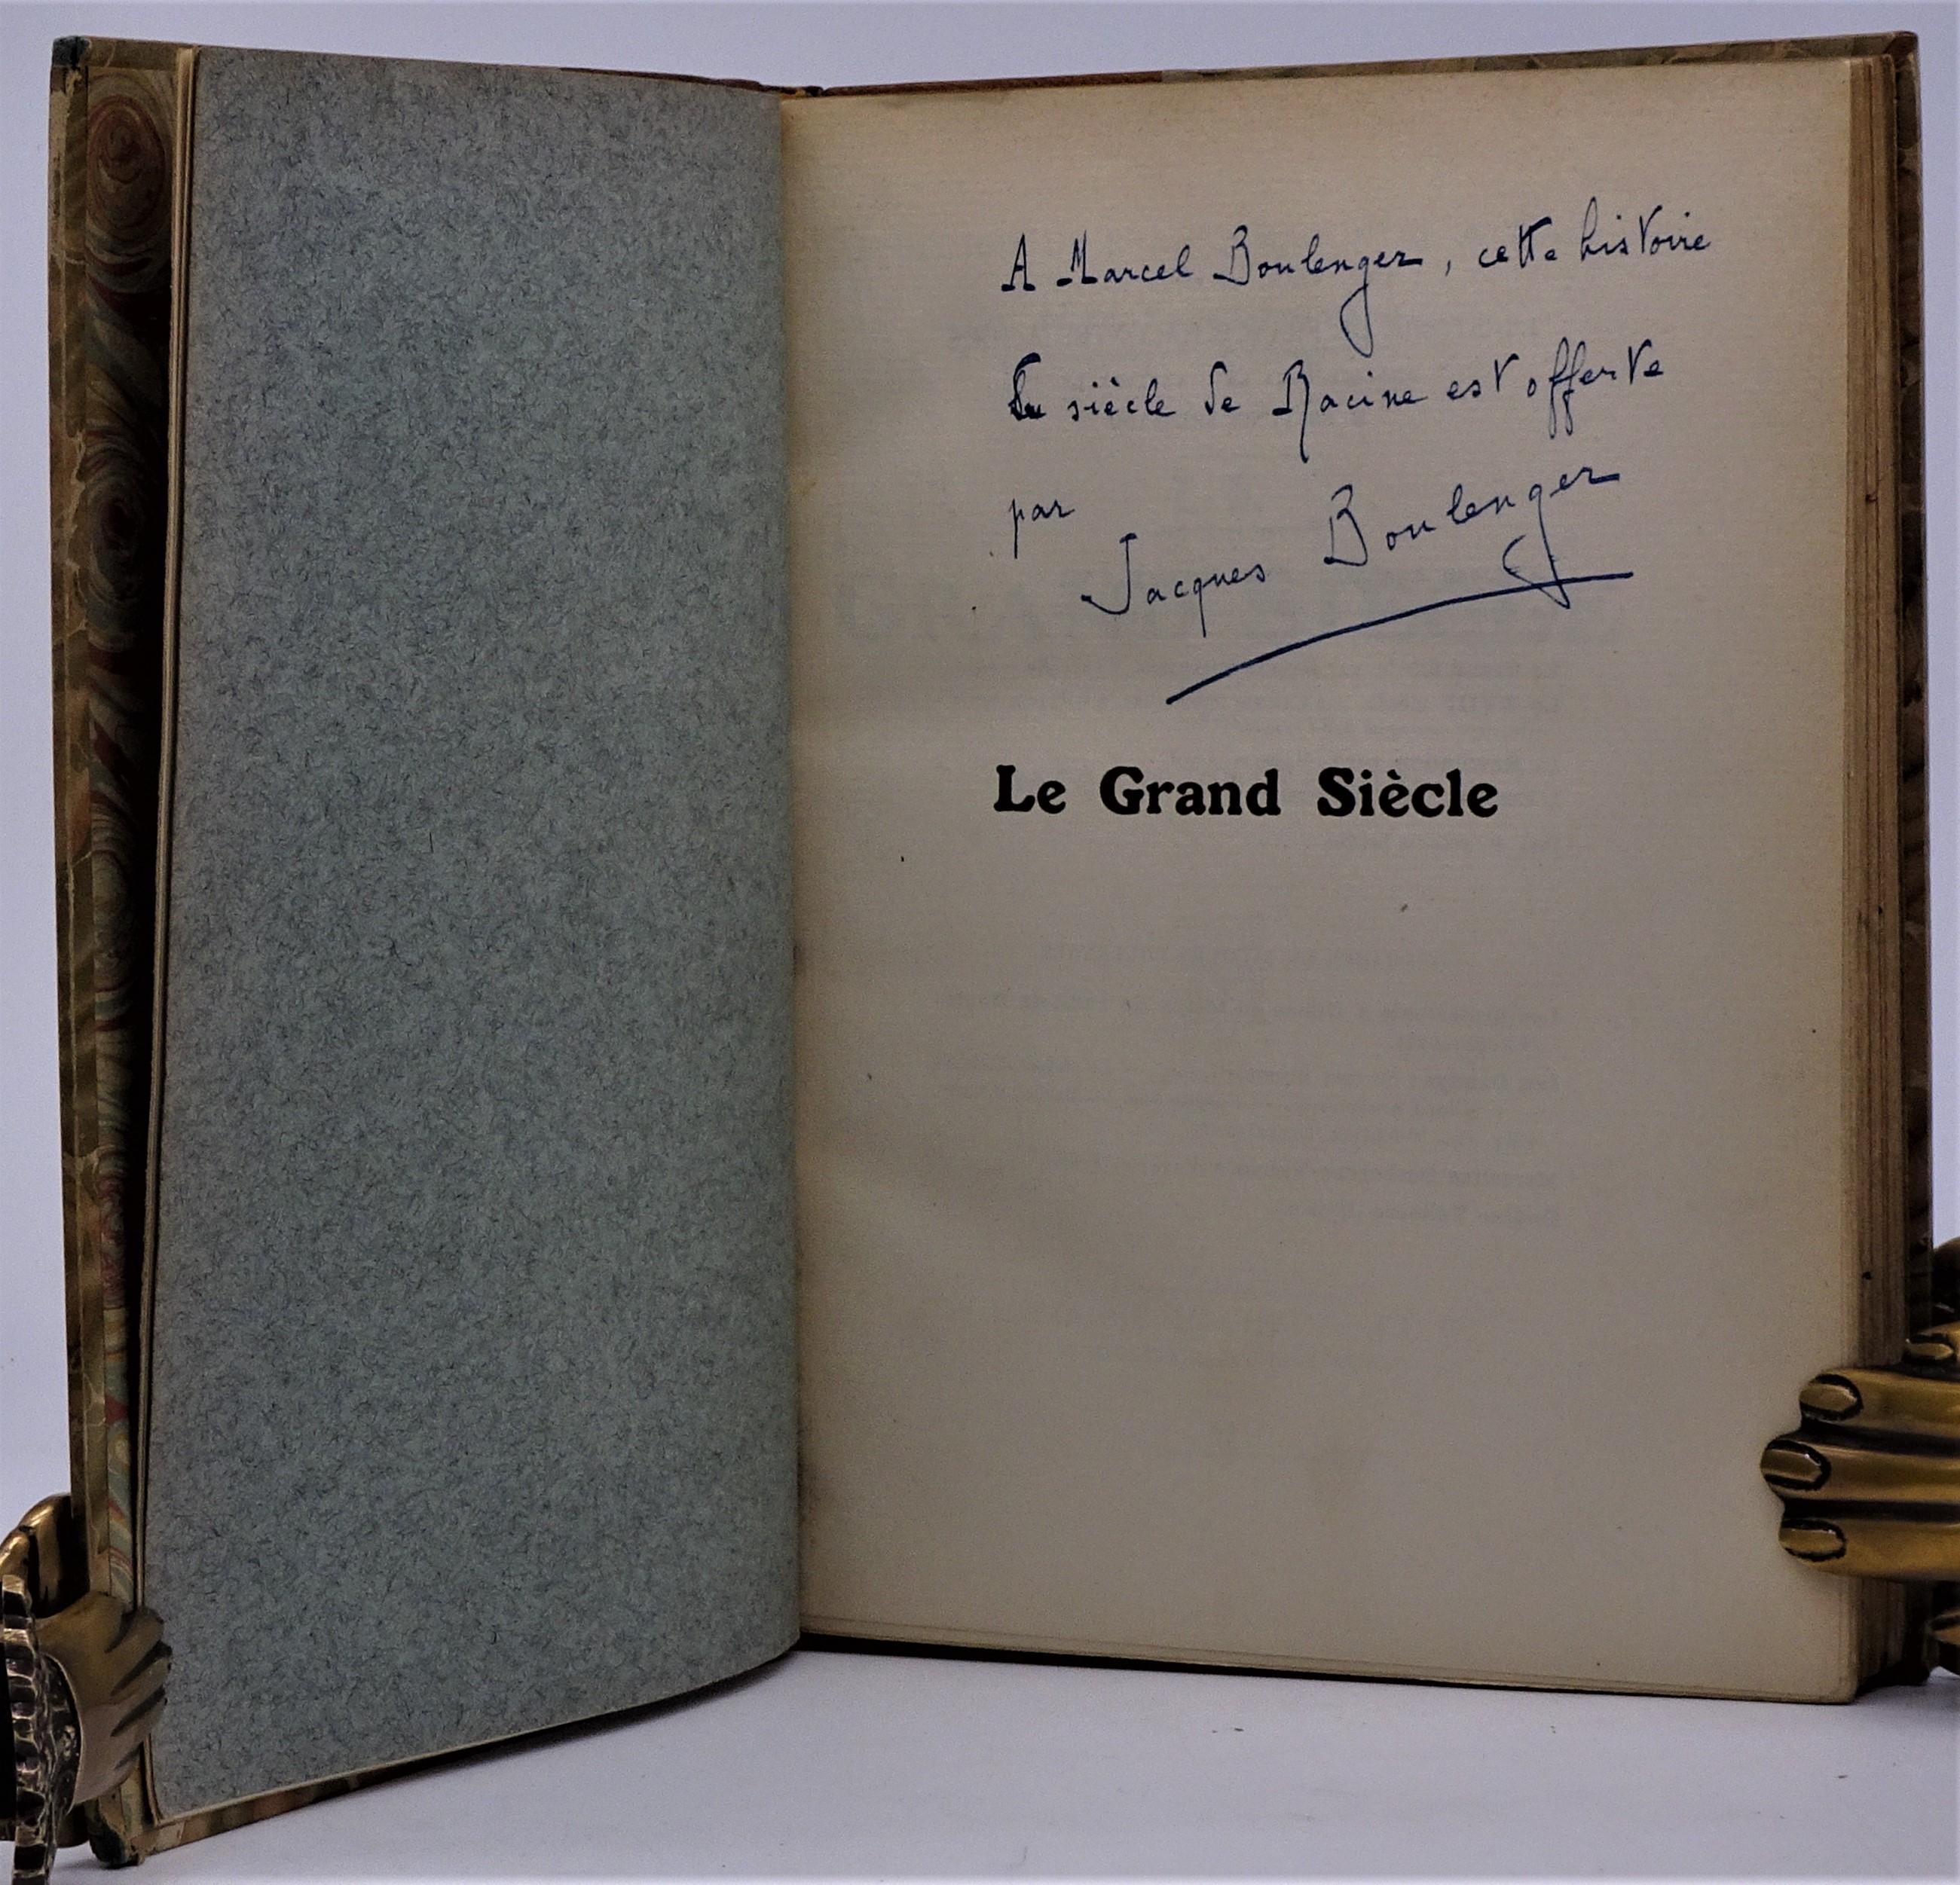 A Marcel Boulenger, cette histoire
du siècle de Racine est offerte
par
Jacques Boulenger
Le Grand Siècle